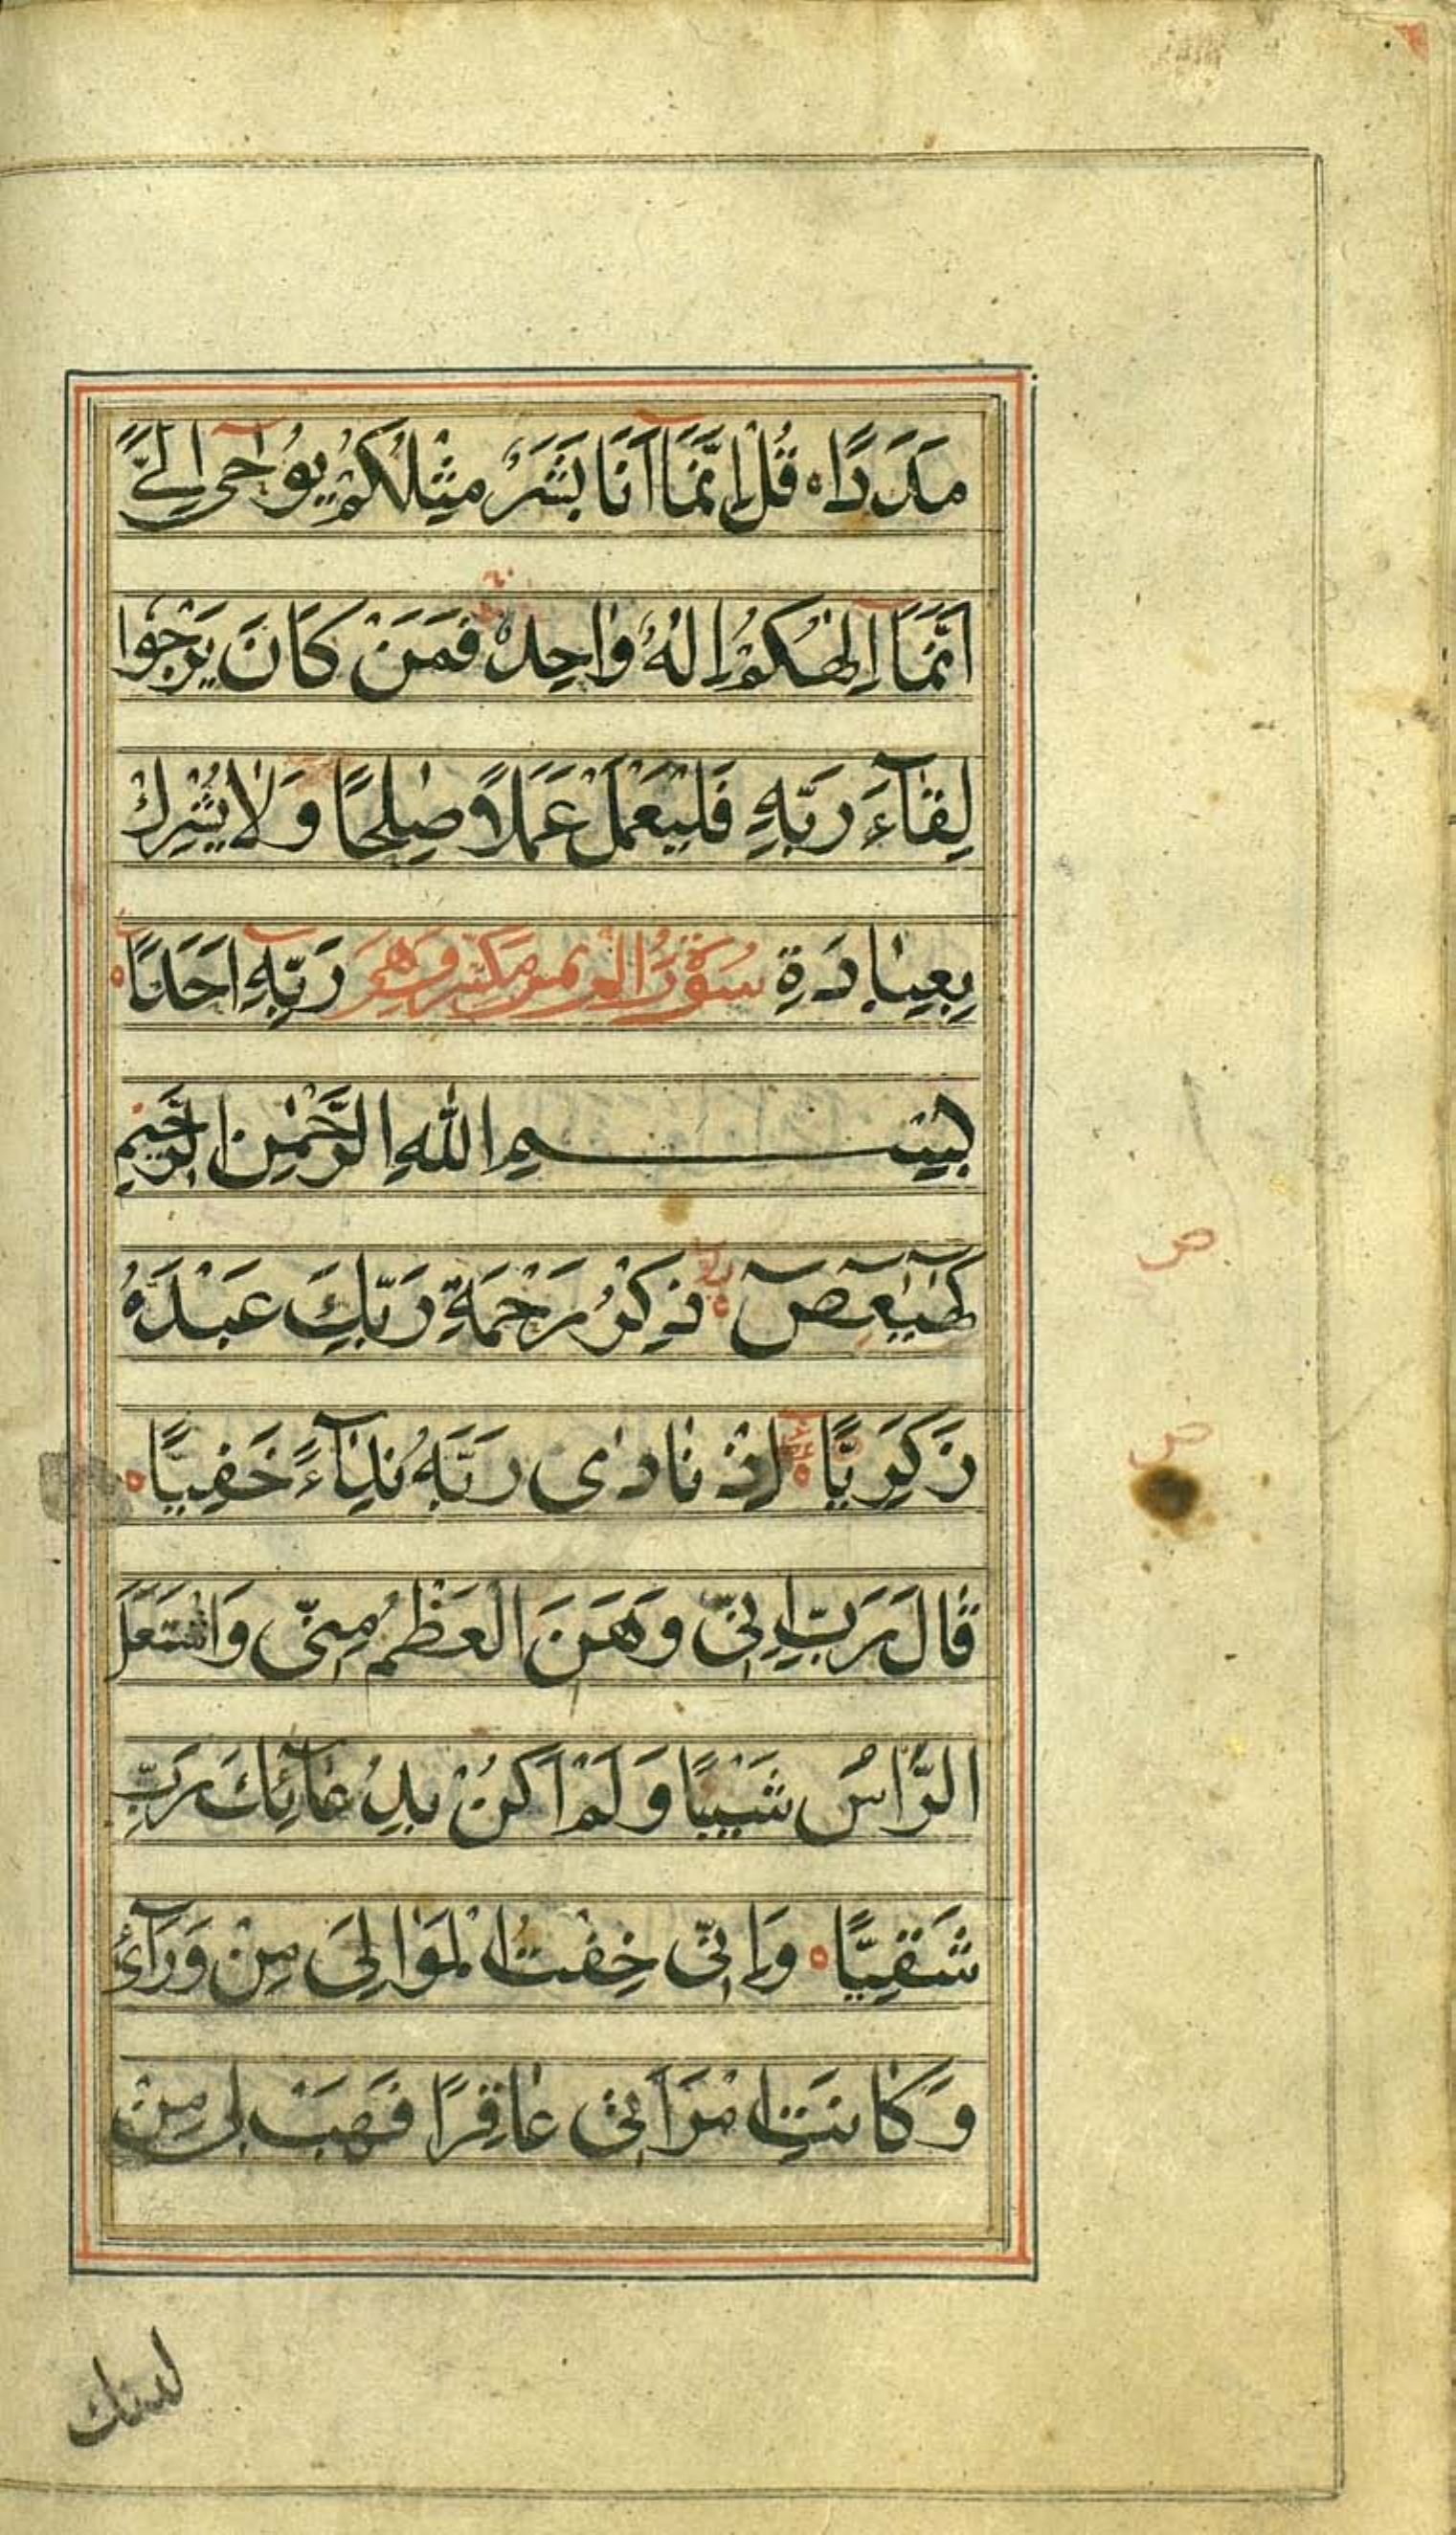 مَدَدًا ۝ قُلْ اِنَّمَآ اَنَا بَشَرٌ مِثْلُكُمْ يُوحٰٓى اِلَیَّ
اَنَّمَآ اِلٰهُكُمْ اِلٰهٌ وٰاحِدٌ فَمَنْ كَانَ يَرْجُوا
لِقٰآءَ رَبِّهِ فَلْيَعْمَلْ عَمَلًا صٰلِحًا وَلٰا يُشْرِكْ
بِعِبٰادَةِ رَبِّهِ اَحَدًا ۝
سُورَةُ المريم مكية وَهِيَ
بِسْمِ اللّٰهِ الرَّحْمٰنِ الرَّحِيمِ
كٓهٰيٰعٓصٓ ۝ ذِكْرُ رَحْمَةِ رَبِّكَ عَبْدَهُ
زَكَرِيَّا ۝ اِذْ نٰادٰى رَبَّهُ نِدٰآءً خَفِيًّا ۝
قٰالَ رَبِّ اِنِّى وَهَنَ الْعَظْمُ مِنّى وَاشْتَعَلَ
الرَّاْسُ شَيْبًا وَلَمْ اَكُنْ بِدُعٰآئِكَ رَبِّ
شَقِيًّا ۝ وَاِنّى خِفْتُ الْمَوٰالِىَ مِنْ وَرَآئ
وَكٰانَتِ امْرَاَتى عٰاقِرًا فَهَبْ لى مِنْ
لدنك
ص
ص